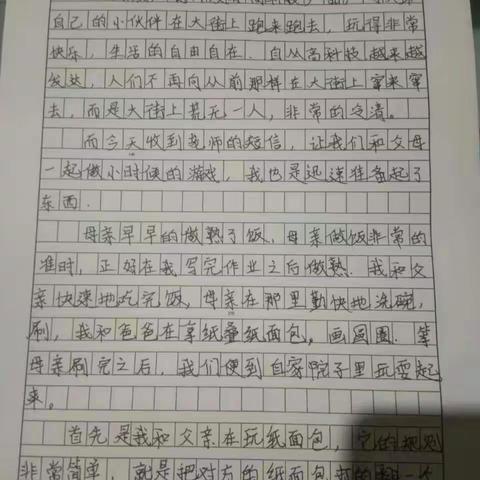 自己的小伙伴在大街上跑来跑去，玩得非常
快乐，生活的自由自在．自从高科技越来越
发达，人们不再向从前那样在大街上窜来窜
去，而是大街上若无一人，非常的冷清。
而今天收到老师的短信，让我们和父母
一起做小时候的游戏，我也是迅速准备起了
东西．
母亲早早的做熟了饭．母亲做饭非常的
准时，正好在我写完作业之后做熟．我和父
亲快速地吃完饭，母亲在那里勤快地洗碗，
刷，我和爸爸在拿纸叠纸面包，画圆圈．等
母亲刷完之后，我们便到自家院子里玩耍起
来。
首先是我和父亲在玩纸面包，它的规则
非常简单，就是把对方的纸面包